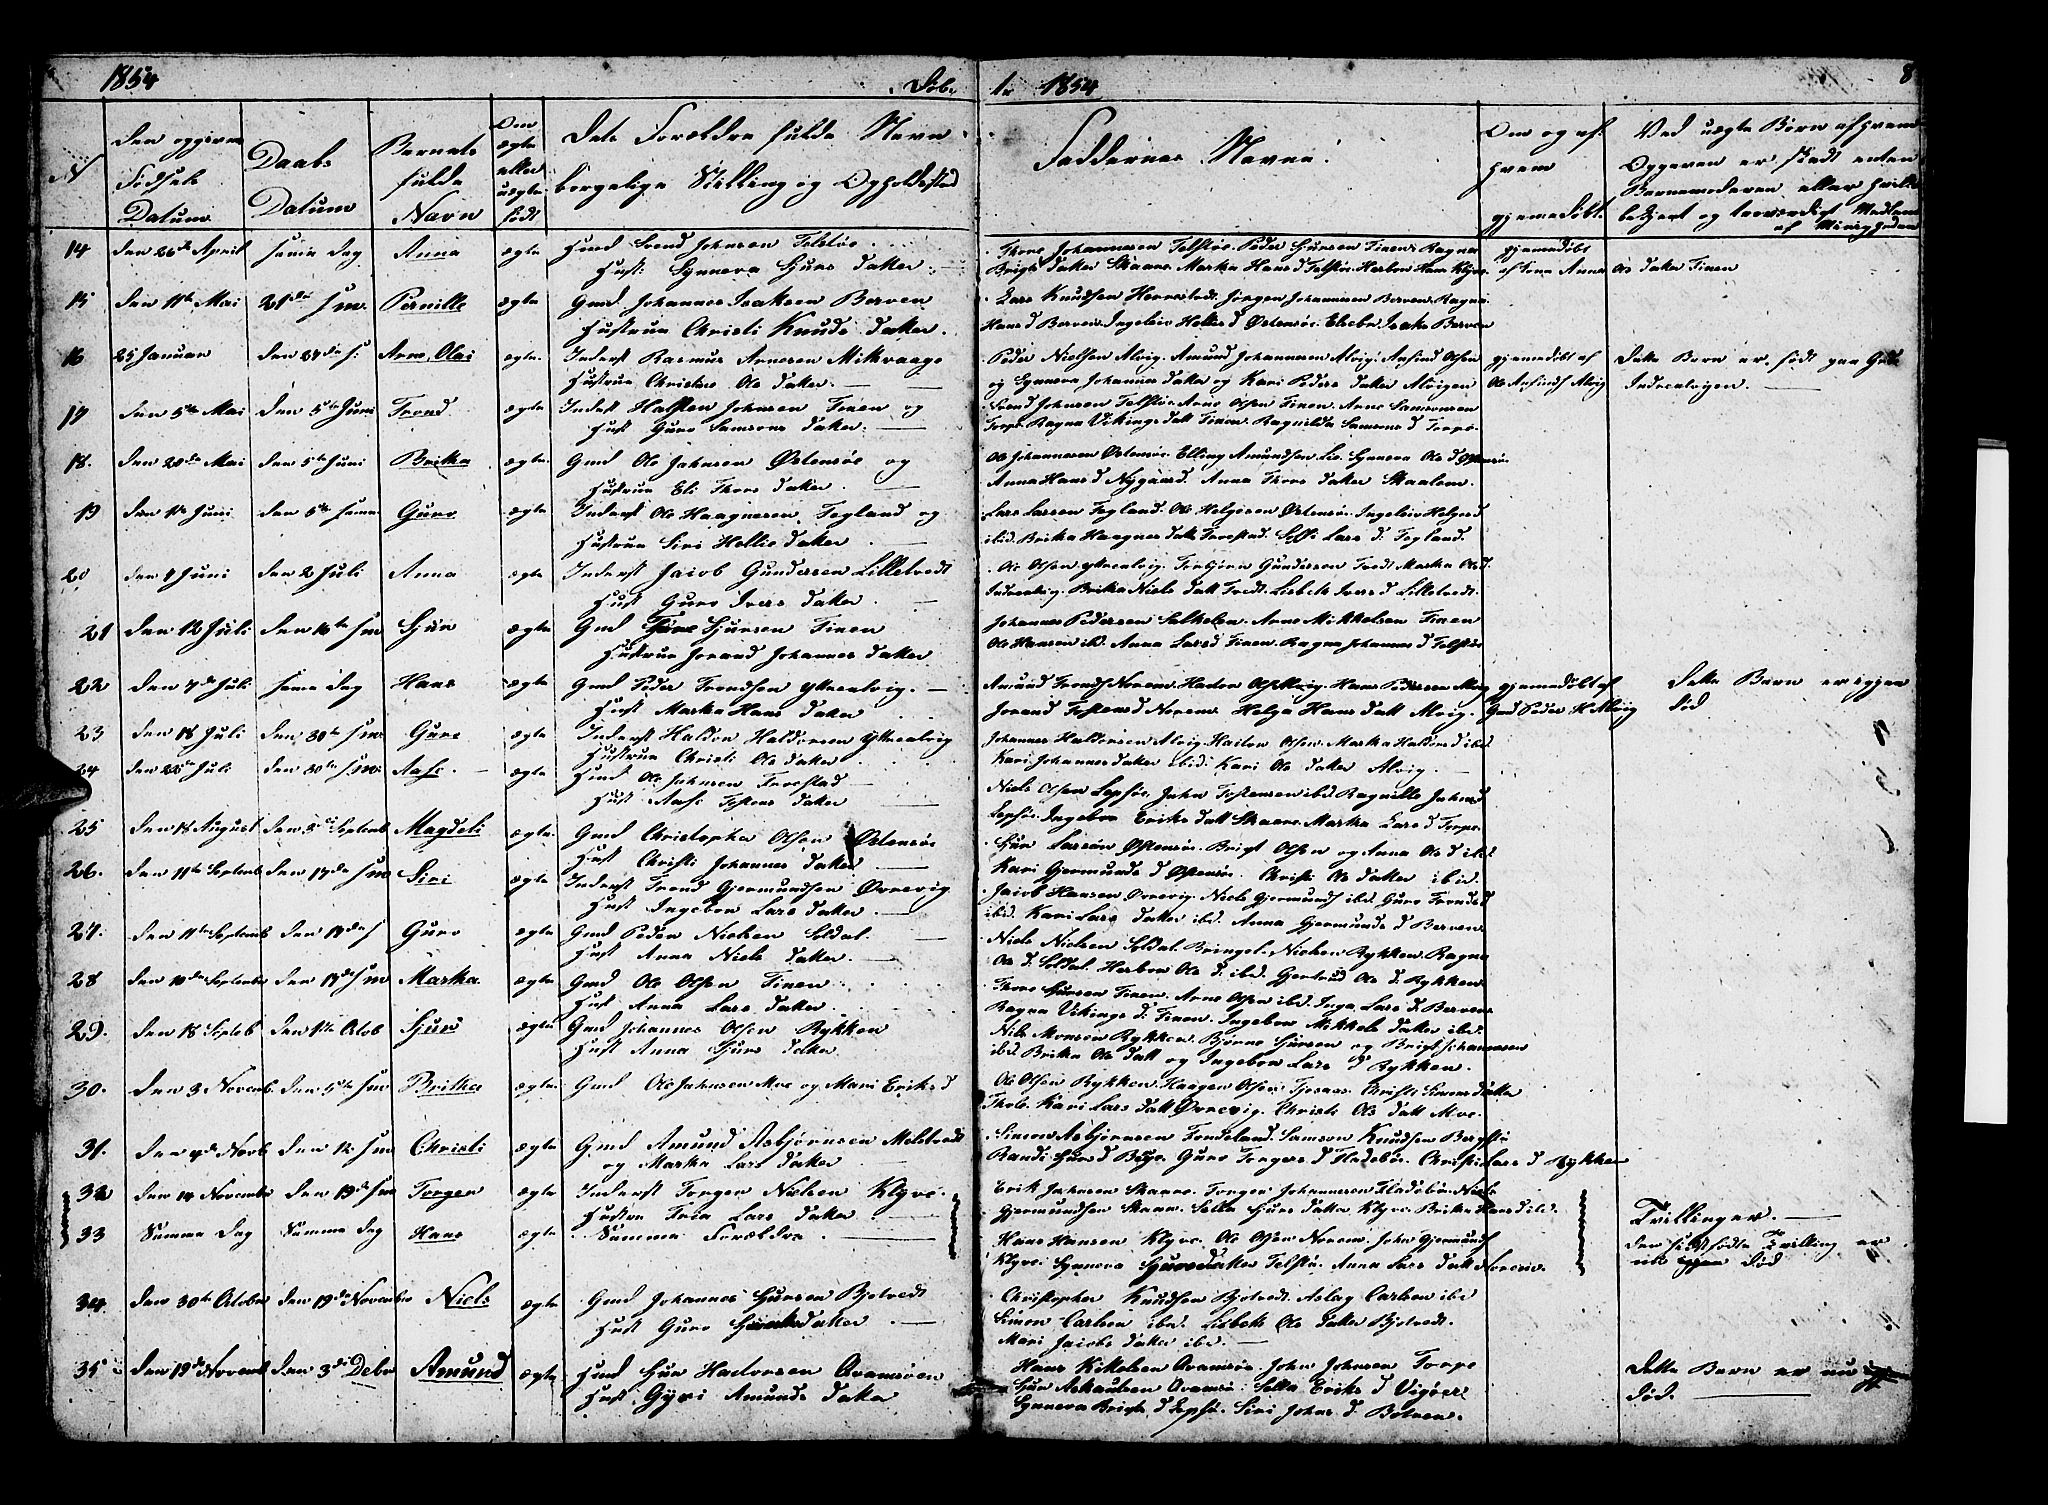 1854
Døb-
1r 1854
8
N
Den opgivne
Fødsels
Datum
Daabs
Datum
Barnets
fulde
Navn
Om
ægte
eller
uægte
født
Dets Forældres fulde Navn
borgelige Stilling og Opholdssted
Faddernes Navne.
Om og af
hvem
hjemmedøbt
Ved uægte Børn af hvem
Opgaven er skedt enten
Barnemoderen eller hvilke
bekjent og troværdigt Medlem
af Menigheden
14 den 26de April samme Dag Anna ægte Huusmd Svend Johnsen Telstøe
Hust: Synneva Sjurs Datter
Thore Johannesen Telstøe. Peder Sjursen Tinen. Ragna
Brigts Datter Skaare. Martha Hans d Telstøe. Herborg Hans Klyve
hjemmedøbt
af Anna Ols Datter Tinen
15 den 11te Mai 21de s m. Pernille ægte Gmd Johannes Isaksen Berven
Hustrue Christi Knuds Datter.
Lars Knudsen Herrestvedt. Jørgen Johannesen Berven. Ragna
Hans d Berven. Ingeleiv Hellies d Østensøe. Elsebe Isaks Berven
16 25 Januar den 27de s: Arne Olai ægte. Inderst Rasmus Arnesen Mikevaage
Hustrue Christense Ols Datter.
Peder Nielsen Alvig. Amund Johannesen Alvig. Anfind Olsen
og Synneva Johannes Datter og Kari Peders Datter Alvigen
hjemmedøbt af
Ole Anfinds Alvig
Dette Barn er født paa Gd
Indrealvigen.
17 den 5te Mai den 5te Juni Trond ægte Inderst Halsten Johnsen Tinen og
Hust Guro Samsons Datter:
Svend Johnsen Telstøe. Arne Olsen Tinen. Arne Samsonsen
Torpe. Ragna Vikings Datt Tinen. Ragnilda Samsons d Torpe.
18. den 20de Mai den 5te Juni Britha ægte. Gmd Ole Johnsen Østensøe og
Hustrue Eli Thors Datter.
Ole Johannesen Østensøe. Elling Amundsen Lie. Synneva Ols d Østensøe
Anna Hans d Nygaard. Anna Thors Datter Skaalem.
19 den 1te Juni den 5te samme Guro ægte Inderst Ole Haagnesen Tegland og
Hustrue Siri Hellie Datter.
Lars Larsen Tegland. Ole Helgesen Østensøe. Ingeleiv Helges d
ibid. Britha Haagnes Datt Trovstad. Selle Lars d. Tegland.
20 den 4 Juni den 2 Juli Anna ægte Inderst Jacob Gundersen Lilletvedt
Hust Guro Ivers Datter.
Ole Olsen Yttrealvig. Torbjørn Gundersen Tvedt. Martha Ols d
Indrealvig. Britha Niels Datt Tvedt. Lisbeth Ivers d Lilletvedt.
21 den 12 Juli den 16te s m Sjur ægte Gmd Sjursen Tinen
Hustrue Jorand Johannes Datter
Johannes Pedersen Solhelen. Arne Mikkelsen Tinen
Ole Hansen ibd. Anna Lars d Tinen. Ragna Johannes d Telstøe
22 den 7de Juli samme Dag Hans ægte Gmd Peder Trondsen Yttrealvig.
Hust Martha Hans Datter
Amund Tronds Norem. Hans Pedersen Alvig
Jorand Tostens d Norem. Helga Hans datt Alvig.
hjemmedøbt af
Gmd Peder H Alvig
Dette Barn er igjen
død
23 den 18 Juli den 30te s m. Guro ægte Inderst Haldor Haldorsen Yttrealvig
Hustrue Christi Ols Datter.
Johannes Haldorsen Alvig. Haldor Olsen. Martha Haldors d ibd
Kari Johannes Datter ibid. Kari Ols Datter Alvig.
24 den 22de Juli den 30te s.m. Aase. ægte Huusmd Ole Johnsen Trovstad
Hust Aase Tostens Datter
Niels Olsen Lepsøe. John Tostensen ibd. Ragnilde Johns d
Lepsøe. Ingebor Eriks datt Skaare. Martha Lars d Torpe.
25 den 18 August den 3die Septemb Magdeli ægte Gmd Christopher Olsen Østensøe
Hust Christi Johannes Datter
Sjur Larsen Østensøe. Brigt Olsen og Anna Ols d ibd.
Kari Gjermunds d Østensøe. Christi Ols Datter ibid.
26. den 11te Septemb den 17de s m Siri ægte Inderst Trond Gjermundsen Øvrevig
Hust Ingebor Lars Datter.
Jacob Hansen Øvrevig. Niels Gjermunds ibd. Guro Tronds d
ibid. Kari Lars Datter ibd. Anna Gjermunds d Berven
27. den 11te Septemb den 17de s Guro ægte Gmd Peder Nielsen Soldal.
Hust Anna Niels Datter.
Niels Nielsen Soldal. Bringel Nielsen Rykken. Ragna
Ols d. Soldal. Herbor Ols d. ibd. Gjertrud Ols d. Rykken
28 den 10de Septembr den 17de s m Martha ægte Gmd Ole Olsen Tinen
Hust Anna Lars Datter
Thore Sjursen Tinen. Arne Olsen ibd. Inga Lars d. Berven
Ragna Vikings d. Tinen. Ingebor Mikkels Datter ibd.
29. den 18 Septeb den 1te Octob Sjur ægte Gmd Johannes Olsen Rykken
Hust Anna Sjurs Datter
Nils Monsen Rykken. Bjørne Sjursen og Brigt Johannesen
ibd Britha Ols Datt og Ingebor Lars d Rykken.
30. den 3 Novemb den 5te s m Britha ægte Gmd Ole Johnsen Moe og Mari Eriks d
Ole Olsen Rykken. Haagen Olsen Tjosnæs. Christi Simons Datter
Thole. Kari Lars Datt Øvrevig. Christi Ols datt Moe.
31. den 4de Novb den 12 s m Christi ægte Gmd Amund Asbjørnsen Melstvedt
og Martha Lars Datter
Simon Asbjørnsen Tondeland. Samson Knudsen Bergstø
Randi Sjurs d Berge Guro Torgers d Fladebøe. Christi Lars d Rykken
32 den 14 November den 19de s m Torger ægte Inderst Torger Nielsen Klyve.
Hustrue Lars Datter
Erik Johnsen Skaare. Torger Johannesen Fladebøe. Niels
Gjermundsen Skaare. Selle Sjurs Datter Klyve. Britha Hans d ibd.
Tvillinger.
33 Samme Dag Samme Dag Hans ægte Samme Forældre
Hans Hansen Klyve. Ole Olsen Norem. John Gjermunds
Klyve Synneva Sjurs Datter Telstøe. Anna Lars Datt
den sidstfødte Tvilling er
død
34 den 30te October den 19de November Niels ægte Gmd Johannes Sjursen Bjotvedt
Hust Guro Datter
Christopher Knudsen Bjotvedt. Aslag Carlsen ibd
Simon Carlsen ibd. Lisbeth Ols Datter Bjotvedt.
Mari Jacobs Datter ibd
35 den 19de Novemb den 3die Debr Amund ægte Huusmd Sjur Hadorsen Aramsøen
Hust Gyri Amunds Datter
Hans Kittelsen Aramsøe. John Johnsen Torpe
Sjur Ashaulsen Aramsø. Selle Eriks d Vigøer
Synneva Brigts d Lepsø. Siri Johns d. Botnen.
Dette Barn er nu
død.